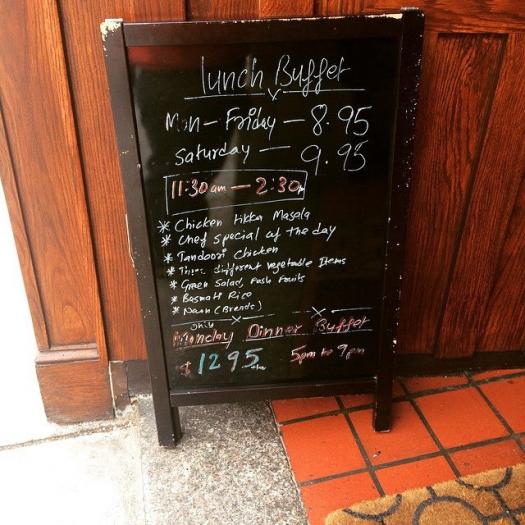 lunch Buffet
Mon - Friday - 8.95
Saturday - 9.95
11:30 am - 2:30
* Chicken tikka Masala
* Chef special of the day
* Tandoori Chicken
* Three different vegetable Items
* Green Salad, Fresh Fruits
* Basmati Rice
* Naan (Breads)
only
Monday Dinner Buffet
$12.95 5pm to 9pm